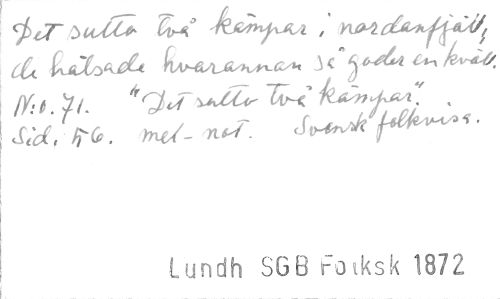 Det sutto två kämpar i nordanfjäll,
de hälsade hvarannan så goder en kväll.
N:o. 71. "Det sutto två kämpar."
Sid. 56. mel-not. Svensk folkvisa.
Lundh SGB Folksk 1872